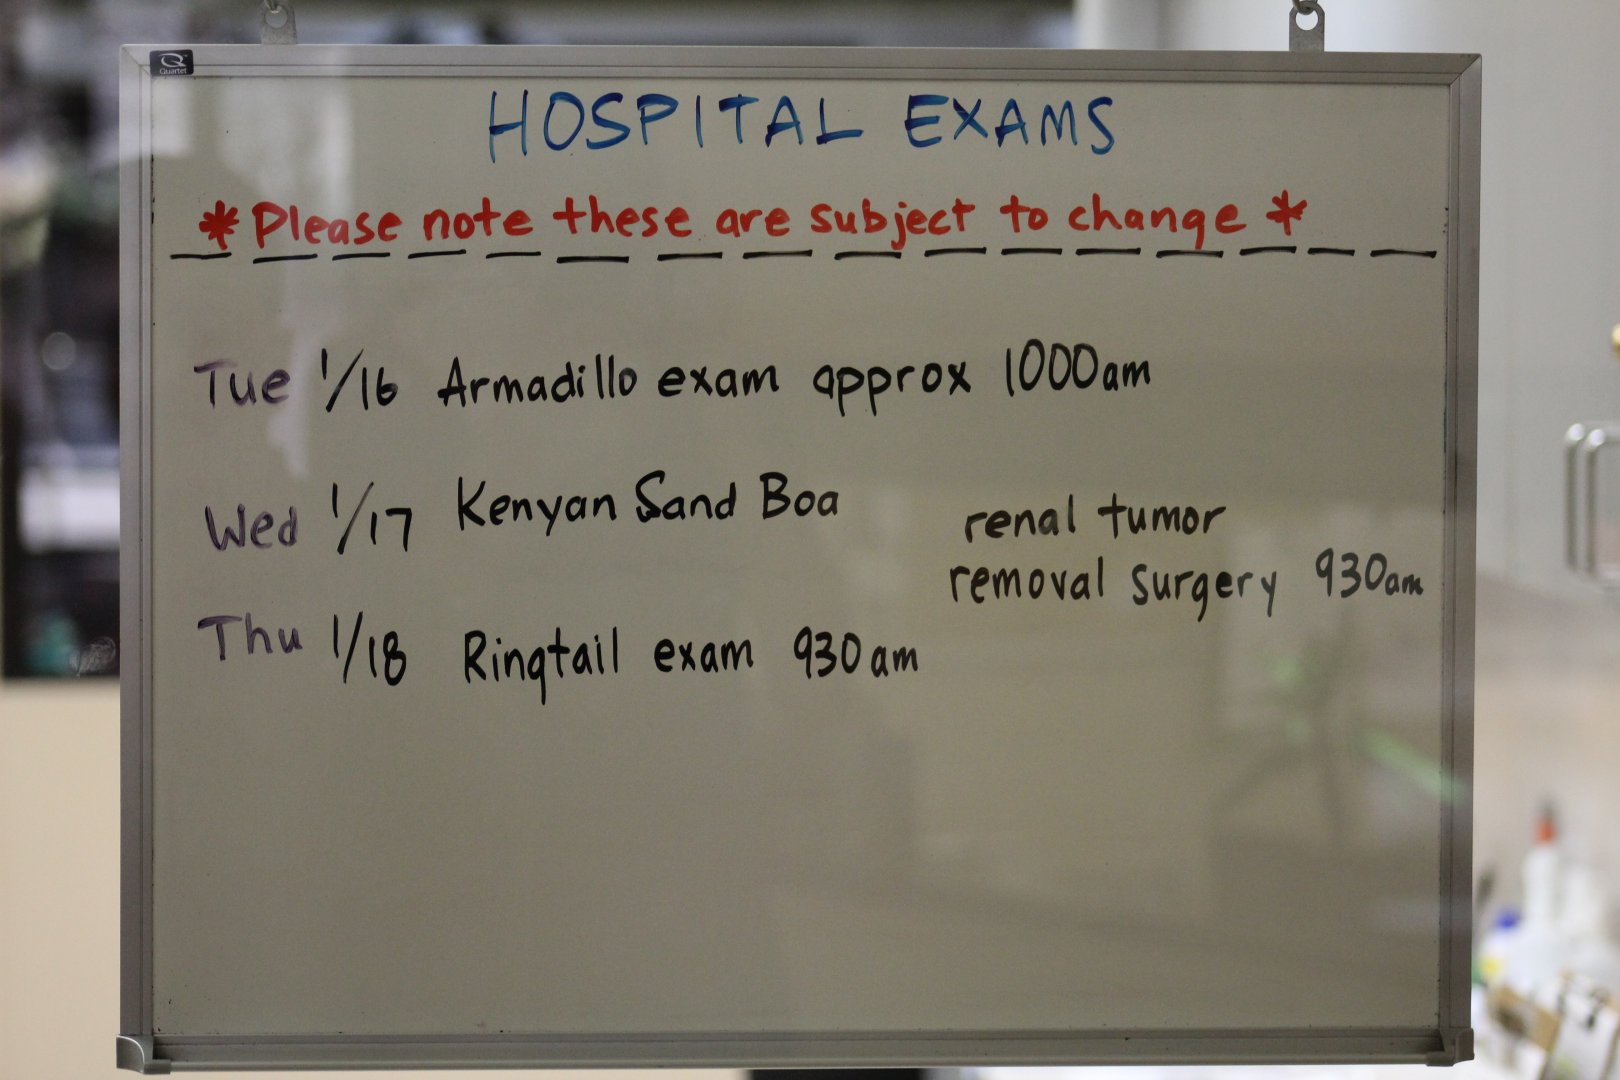 Quartet
HOSPITAL EXAMS
*Please note these are subject to change*
Tue 1/16 Armadillo exam approx 1000am
Wed 1/17 Kenyan Sand Boa renal tumor
removal surgery 930am
Thu 1/18 Ringtail exam 930am